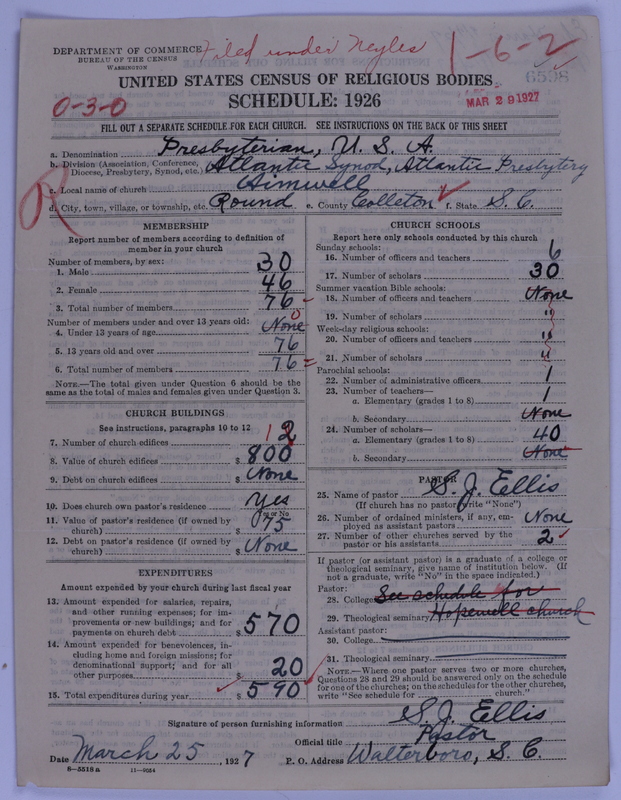 Filed under Neyles
1-6-2
DEPARTMENT OF COMMERCE
BUREAU OF THE CENSUS
WASHINGTON
6598
UNITED STATES CENSUS OF RELIGIOUS BODIES
0-3-0
SCHEDULE: 1926
MAR 29 1927
FILL OUT A SEPARATE SCHEDULE FOR EACH CHURCH. SEE INSTRUCTIONS ON THE BACK OF THIS SHEET
a. Denomination Presbyterian, U. S. A.
b. Division (Association, Conference, Diocese, Presbytery, Synod, etc.) Atlantic Synod, Atlantic Presbytery
c. Local name of church Himwell
d. City, town, village, or township, etc. Round e. County Colleton f. State S. C.
R
MEMBERSHIP
Report number of members according to definition of
member in your church
Number of members, by sex:
1. Male 30
2. Female 46
3. Total number of members 76
Number of members under and over 13 years old:
4. Under 13 years of age None 0
5. 13 years old and over 76
6. Total number of members 76
NOTE.—The total given under Question 6 should be the
same as the total of males and females given under Question 3.
CHURCH BUILDINGS
See instructions, paragraphs 10 to 12
7. Number of church edifices 1 2
8. Value of church edifices $ 800
9. Debt on church edifices $ None
10. Does church own pastor's residence Yes
Yes or No
11. Value of pastor's residence (if owned by
church) $ 75
12. Debt on pastor's residence (if owned by
church) $ None
EXPENDITURES
Amount expended by your church during last fiscal year
13. Amount expended for salaries, repairs,
and other running expenses; for im-
provements or new buildings; and for
payments on church debt $ 570
14. Amount expended for benevolences, in-
cluding home and foreign missions; for
denominational support; and for all
other purposes $ 20
15. Total expenditures during year $ 590
CHURCH SCHOOLS
Report here only schools conducted by this church
Sunday schools:
16. Number of officers and teachers 6
17. Number of scholars 30
Summer vacation Bible schools:
18. Number of officers and teachers None
19. Number of scholars "
Week-day religious schools:
20. Number of officers and teachers "
21. Number of scholars "
Parochial schools:
22. Number of administrative officers 1
23. Number of teachers—
a. Elementary (grades 1 to 8) 1
b. Secondary None
24. Number of scholars—
a. Elementary (grades 1 to 8) 40
b. Secondary None
PASTOR
25. Name of pastor S. J. Ellis
(If church has no pastor write "None")
26. Number of ordained ministers, if any, em-
ployed as assistant pastors None
27. Number of other churches served by the
pastor or his assistants 2
If pastor (or assistant pastor) is a graduate of a college or
theological seminary, give name of institution below. (If
not a graduate, write "No" in the space indicated.)
Pastor:
28. College See schedule for
29. Theological seminary Hopewell church
Assistant pastor:
30. College
31. Theological seminary
NOTE.—Where one pastor serves two or more churches,
Questions 28 and 29 should be answered only on the schedule
for one of the churches; on the schedules for the other churches,
write "See schedule for ______ church."
Signature of person furnishing information S. J. Ellis
Official title Pastor
Date March 25, 1927 P. O. Address Walterboro, S. C.
8—5518 a 11—9024